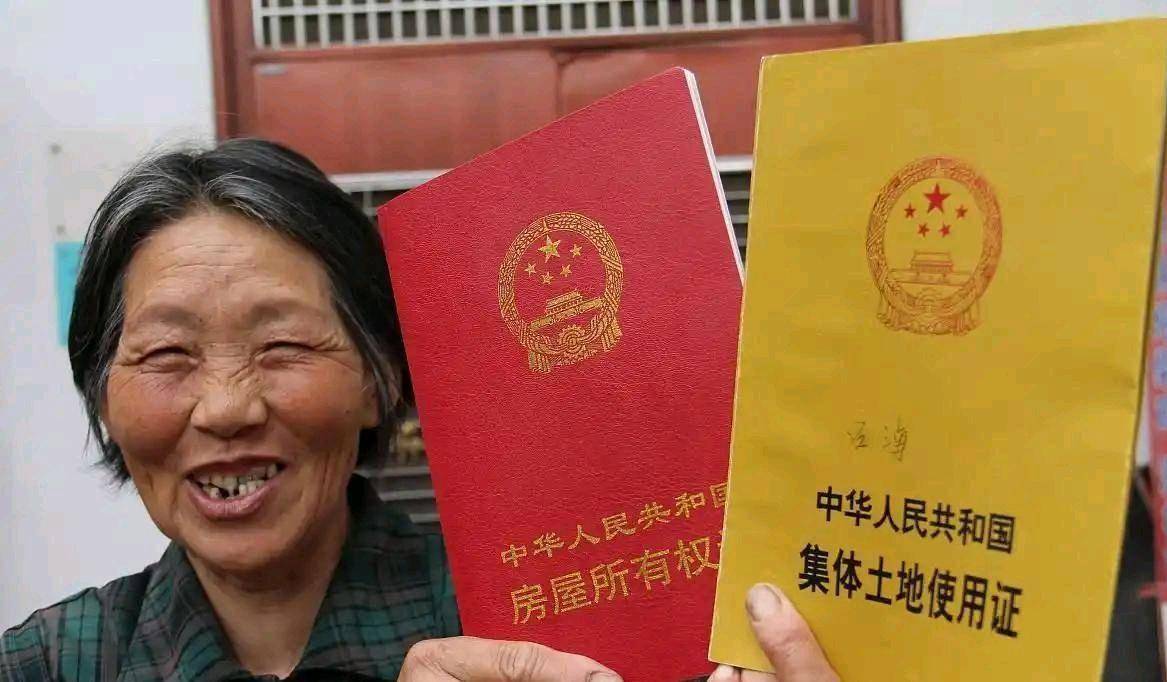 中华人民共和国
房屋所有权
中华人民共和国
集体土地使用证